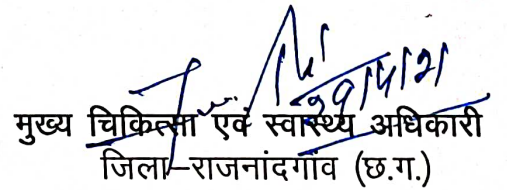 मुख्य चिकित्सा एवं स्वास्थ्य अधिकारी
जिला–राजनांदगॉव (छ.ग.)